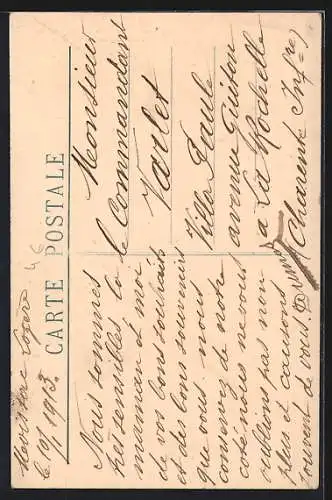 CARTE POSTALE
le 1/1 1913.
Nous sommes
tres sensibles la
maman et moi
de vos bons souhaits
et des bons souvenirs
que vous nous
conservez de notre
coté nous ne vous
oublions pas non
plus et causons
souvent de vous.
Monsieur
le Commandant
Varlet
Villa Paule
avenue Guiton
a La Rochelle
(Charente Infre)